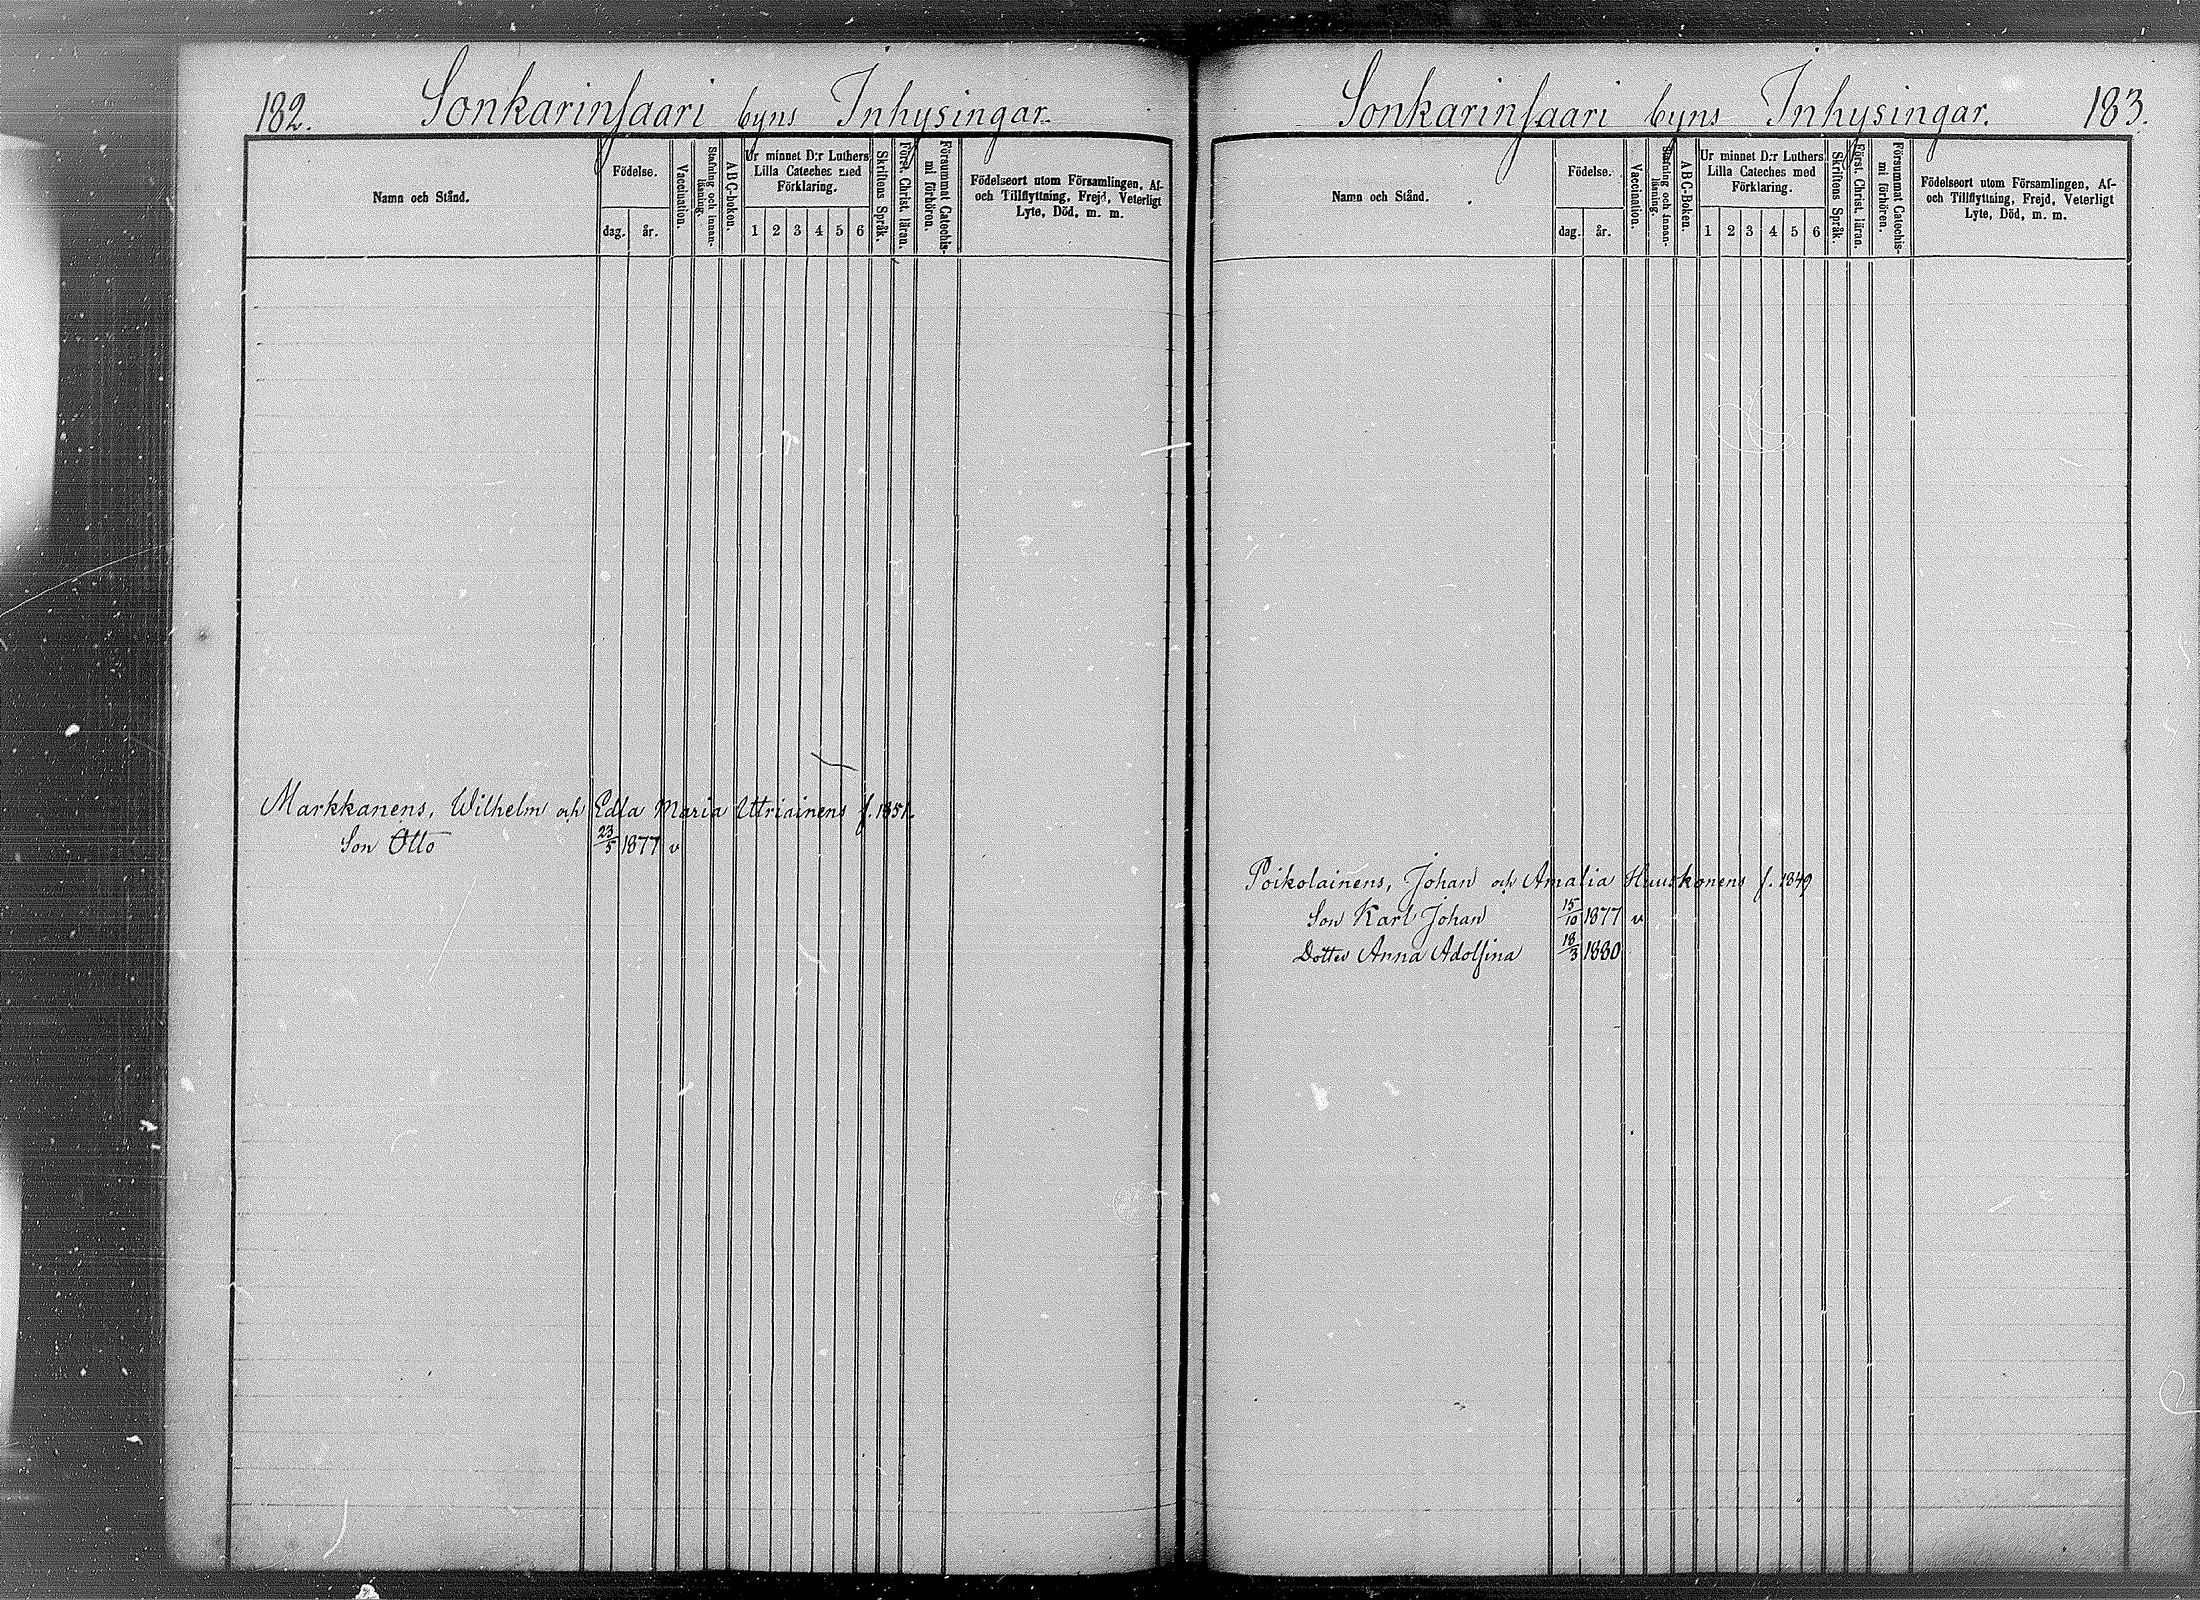 182. Sonkarinsaari byns Inhysingar.
Namn och Stånd.
Födelse.
dag. år.
Vaccination.
Stafning och innan-
läsning.
A B C-boken.
Ur minnet D:r Luthers
Lilla Cateches med
Förklaring.
1 2 3 4 5 6
Skriftens Språk.
Först. Christ. läran.
Försummat Catechis-
mi förhören.
Födelseort utom Församlingen, Af-
och Tillflyttning, Frejd, Veterligt
Lyte, Död, m. m.
Markkanens, Wilhelm och Edla Maria Uttriainens f. 1851.
Son Otto 23/5 1877 v
Sonkarinsaari byns Inhysingar. 183.
Namn och Stånd.
Födelse.
dag. år.
Vaccination.
Stafning och innan-
läsning.
A B C-Boken.
Ur minnet D:r Luthers
Lilla Cateches med
Förklaring.
1 2 3 4 5 6
Skriftens Språk.
Först. Christ. läran.
Försummat Catechis-
mi förhören.
Födelseort utom Församlingen, Af-
och Tillflyttning, Frejd, Veterligt
Lyte, Död, m. m.
Poikolainens, Johan och Amalia Huuskonens f. 1849
Son Karl Johan 15/10 1877 v
Dotter Anna Adolfina 18/3 1880